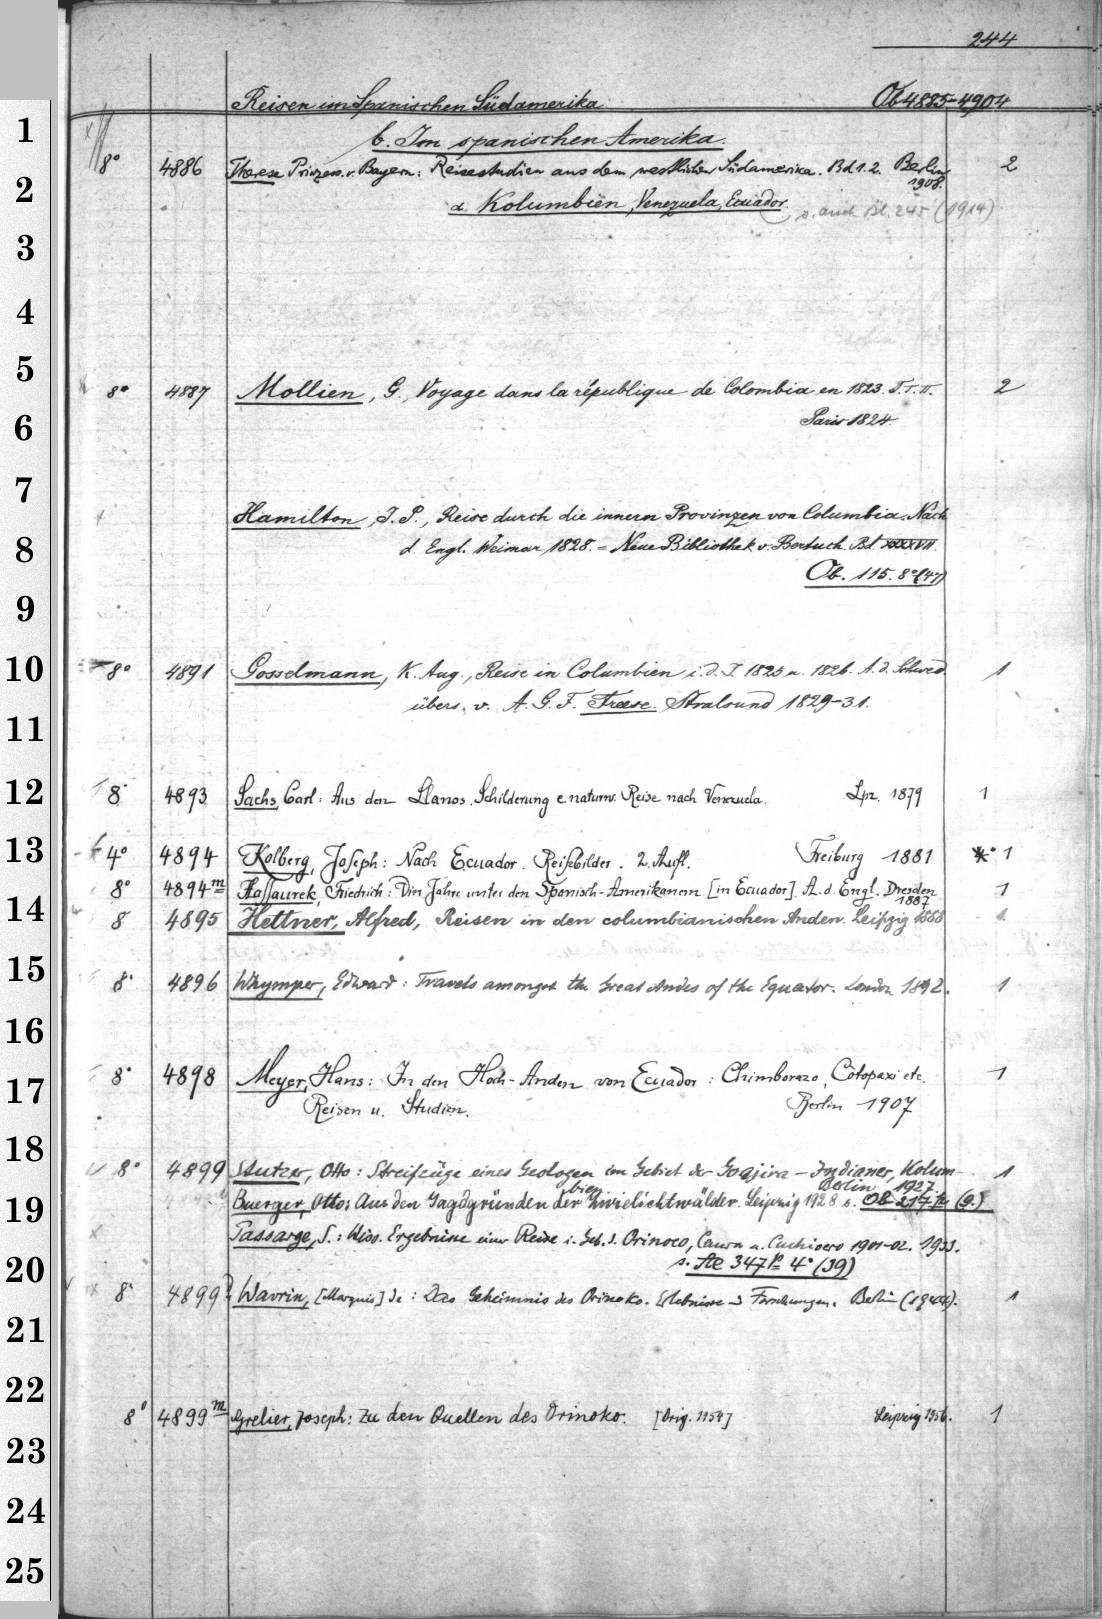 244
Reisen im Spanischen Südamerika Ob 4885-4904
b. Im spanischen Amerika.
8° 4886 Therese Prinzess. v. Bayern: Reisestudien aus dem westlichen Südamerika. Bd 1.2. Berlin 2
1908.
a. Kolumbien, Venezuela, Ecuador. s. auch Bl. 245 (1914)
8° 4887 Mollien, G., Voyage dans la république de Colombia en 1823. T. I. II. 2
Paris 1824.
Hamilton, J. P., Reise durch die innern Provinzen von Columbia. Nach
d. Engl. Weimar 1828. = Neue Bibliothek v. Bertuch Bd. XXXXVII.
Ob. 115. 8° (47)
8° 4891 Gosselmann, K. Aug., Reise in Columbien i. d. J. 1825 u. 1826. A. d. Schwed. 1
übers. v. A. G. F. Freese. Stralsund 1829-31.
8° 4893 Sachs, Carl: Aus den Llanos. Schilderung e. naturw. Reise nach Venezuela. Lpz. 1879 1
4° 4894 Kolberg, Joseph: Nach Ecuador. Reisebilder. 2. Aufl. Freiburg 1881 1
8° 4894m Hassaurek, Friedrich: Vier Jahre unter den Spanisch-Amerikanern [in Ecuador]. A. d. Engl. Dresden 1
1887
8° 4895 Hettner, Alfred, Reisen in den columbianischen Anden. Leipzig 1888 1
8° 4896 Whymper, Edward: Travels amongst the Great Andes of the Equator. London 1892. 1
8° 4898 Meyer, Hans: In den Hoch-Anden von Ecuador: Chimborazo, Cotopaxi etc. 1
Reisen u. Studien. Berlin 1907
8° 4899 Stutzer, Otto: Streifzüge eines Geologen im Gebiet der Goajira-Indianer, Kolum- 1
bien Berlin 1927
Buerger, Otto: Aus den Jagdgründen der Zwielichtwälder. Leipzig 1928 s. Ob 217 (9.)
Passarge, S.: Wiss. Ergebnisse einer Reise i. Geb. d. Orinoco, Caura u. Cuchivero 1901-02. 1933.
s. Ae 347 4° (39)
8° 4899 Wavrin, [Marquis] de: Das Geheimnis des Orinoko. Erlebnisse u. Forschungen. Berlin (1944). 1
8° 4899m Grelier, Joseph: Zu den Quellen des Orinoko. [Orig. 1954] Leipzig 1956. 1
1
2
3
4
5
6
7
8
9
10
11
12
13
14
15
16
17
18
19
20
21
22
23
24
25